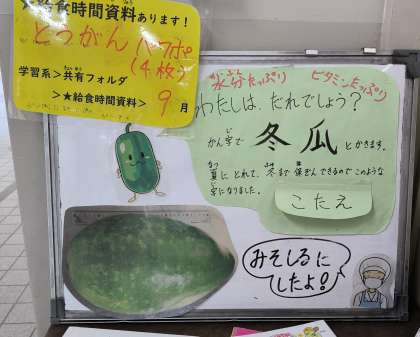 ★給食時間資料あります！
とうがん パワポ
(4枚)
学習系＞共有フォルダ
＞★給食時間資料＞ 9月
水分たっぷり ビタミンたっぷり
わたしは、だれでしょう？
かん字で 冬瓜 とかきます。
夏にとれて、冬まで保ぞんできるのでこのような
字になりました。
こたえ
みそしるに
したよ！